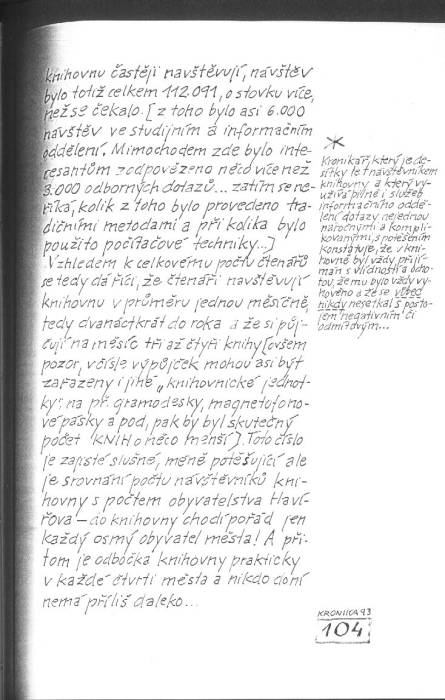 knihovnu častěji navštěvují, návštěv
bylo totiž celkem 112.091, o stovku více,
než se čekalo. [z toho bylo asi 6.000
návštěv ve studijním a informačním
oddělení. Mimochodem zde bylo inte-
resantům zodpovězeno něco více než
3.000 odborných dotazů... zatím se ne-
říká, kolik z toho bylo provedeno tra-
dičními metodami a při kolika bylo
použito počítačové techniky...]
Vzhledem k celkovému počtu čtenářů
se tedy dá říci, že čtenáři navštěvují
knihovnu v průměru jednou měsíčně,
tedy dvanáctkrát do roka a že si půj-
čují na měsíc tři až čtyři knihy [ovšem
pozor, v čísle výpůjček mohou asi být
zařazeny i jiné "knihovnické jednot-
ky": na př. gramodesky, magnetofono-
vé pásky a pod, pak by byl skutečný
počet KNIH o něco menší]. Toto číslo
je zajisté slušné, méně potěšující ale
je srovnání počtu návštěvníků kni-
hovny s počtem obyvatelstva Haví-
řova – do knihovny chodí pořád jen
každý osmý obyvatel města! A při-
tom je odbočka knihovny prakticky
v každé čtvrti města a nikdo do ní
nemá příliš daleko...
*
Kronikář, který je de-
sítky let návštěvníkem
knihovny a který vy-
užívá pilně i služeb
informačního oddě-
lení, dotazy nejednou
náročnými a kompli-
kovanými, s potěšením
konstatuje, že v kni-
hovně byl vždy přijí-
mán s vlídností a ocho-
tou, že mu bylo vždy vy-
hověno a že se vůbec
nikdy nesetkal s posto-
jem negativním či
odmítavým...
KRONIKA 93
104